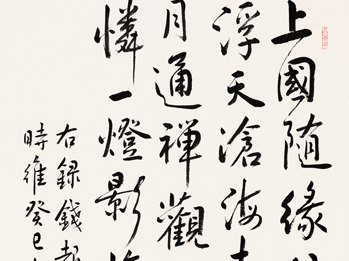 上國隨緣
浮天滄海
月通禪觀
憐一燈影
右錄錢起
時維癸巳